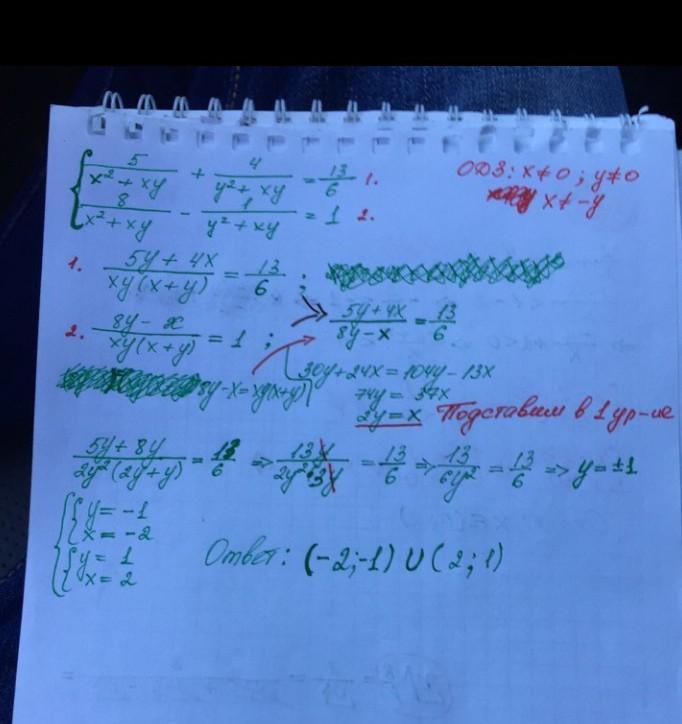 { 5/(x² + xy) + 4/(y² + xy) = 13/6 1. ОДЗ: x ≠ 0 ; y ≠ 0
8/(x² + xy) - 1/(y² + xy) = 1 2. x ≠ -y
1. (5y + 4x)/(xy(x+y)) = 13/6 ;
2. (8y - x)/(xy(x+y)) = 1 ; (5y+4x)/(8y-x) = 13/6
8y-x=xy(x+y) 30y+24x = 104y - 13x
74y = 37x
2y = x Подставим в 1 ур-ие
(5y + 8y)/(2y²(2y+y)) = 13/6 => 13y/(2y²·3y) = 13/6 => 13/(6y²) = 13/6 => y = ±1
{ y = -1
x = -2
{ y = 1
x = 2
Ответ: (-2;-1) ∪ (2;1)